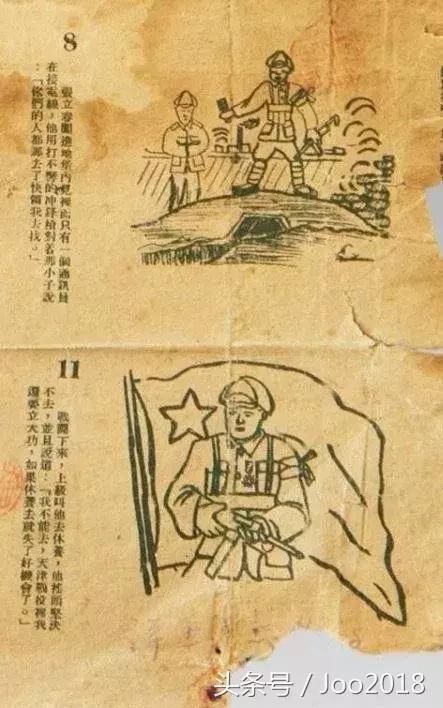 8
張立春闖進地堡內見裡面只有一個通訊員
在接電線，他用打不響的冲鋒槍對着那小子說
：「你們的人都那去了快領我去找。」
11
戰鬪下來，上級叫他去休養，他搖頭堅決
不去，並且說道：「我不能去，天津戰役裡我
還要立大功，如果休養去就失了好機會了。」
头条号 / Joo2018